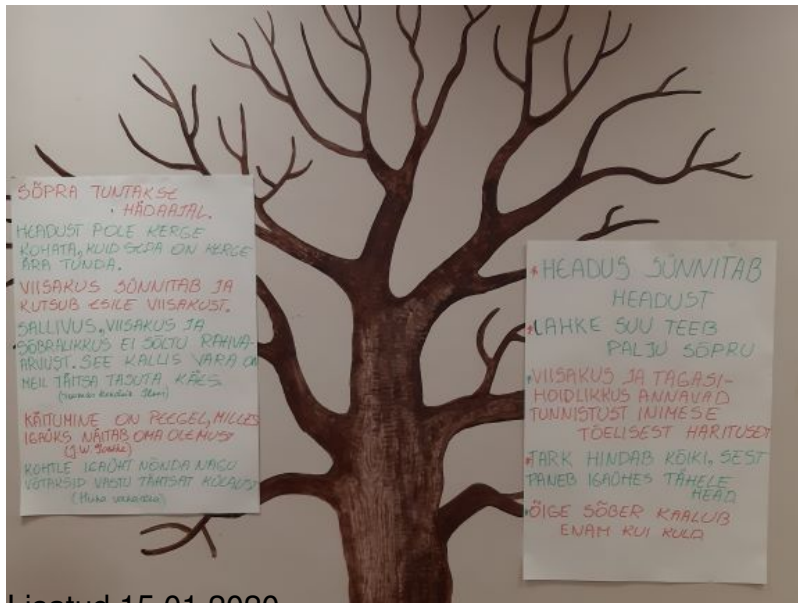 SÕPRA TUNTAKSE
HÄDAAJAL.
HEADUST POLE KERGE
KOHATA, KUID SEDA ON KERGE
ÄRA TUNDA.
VIISAKUS SÜNNITAB JA
KUTSUB ESILE VIISAKUST.
SALLIVUS, VIISAKUS JA
SÕBRALIKKUS EI SÕLTU RAHVA-
ARVUST. SEE KALLIS VARA ON
MEIL TÄITSA TASUTA KÄES.
KÄITUMINE ON PEEGEL, MILLES
IGAÜKS NÄITAB OMA OLEMUST
(J.W. Goethe)
KOHTLE IGAÜHT NÕNDA NAGU
VÕTAKSID VASTU TÄHTSAT KÜLALIST
(Hiina vanasõna)
* HEADUS SÜNNITAB
HEADUST
* LAHKE SUU TEEB
PALJU SÕPRU
* VIISAKUS JA TAGASI-
HOIDLIKKUS ANNAVAD
TUNNISTUST INIMESE
TÕELISEST HARITUSEST
* TARK HINDAB KÕIKI, SEST
PANEB IGAÜHES TÄHELE
HEAD.
* ÕIGE SÕBER KAALUB
ENAM KUI KULD
Lisatud 15.01.2020